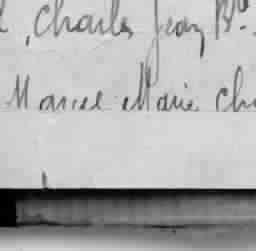 , Charles Jean Bte.
Marcel Marie Ch